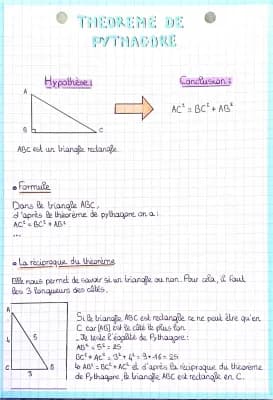 THEOREME DE
PYTHAGORE
Hypothèse:
Conclusion:
A
B
C
AC² = BC² + AB²
ABC est un triangle rectangle.
• Formule
Dans le triangle ABC,
d'après le théorème de pythagore on a :
AC² = BC² + AB²
...
• La réciproque du théorème
Elle nous permet de savoir si un triangle ou non. Pour cela, il faut
les 3 longueurs des côtés.
A
4
5
C
3
B
Si le triangle ABC est rectangle ce ne peut être qu'en
C car [AB] est le côté le plus long.
- Je teste l'égalité de Pythagore:
AB² = 5² = 25
BC² + AC² = 3² + 4² = 9 + 16 = 25
AB² = BC² + AC² et d'après la réciproque du théorème
de Pythagore, le triangle ABC est rectangle en C.